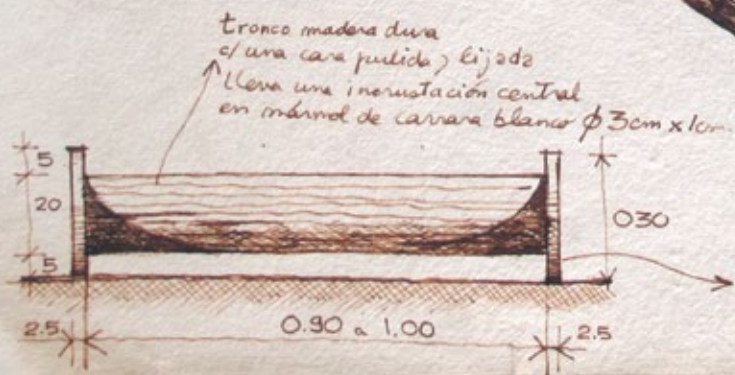 tronco madera dura
c/ una cara pulida y lijada
lleva una incrustación central
en mármol de carrara blanco ϕ 3cm x 1cm.
5
20
5
030
2.5
0.90 a 1.00
2.5